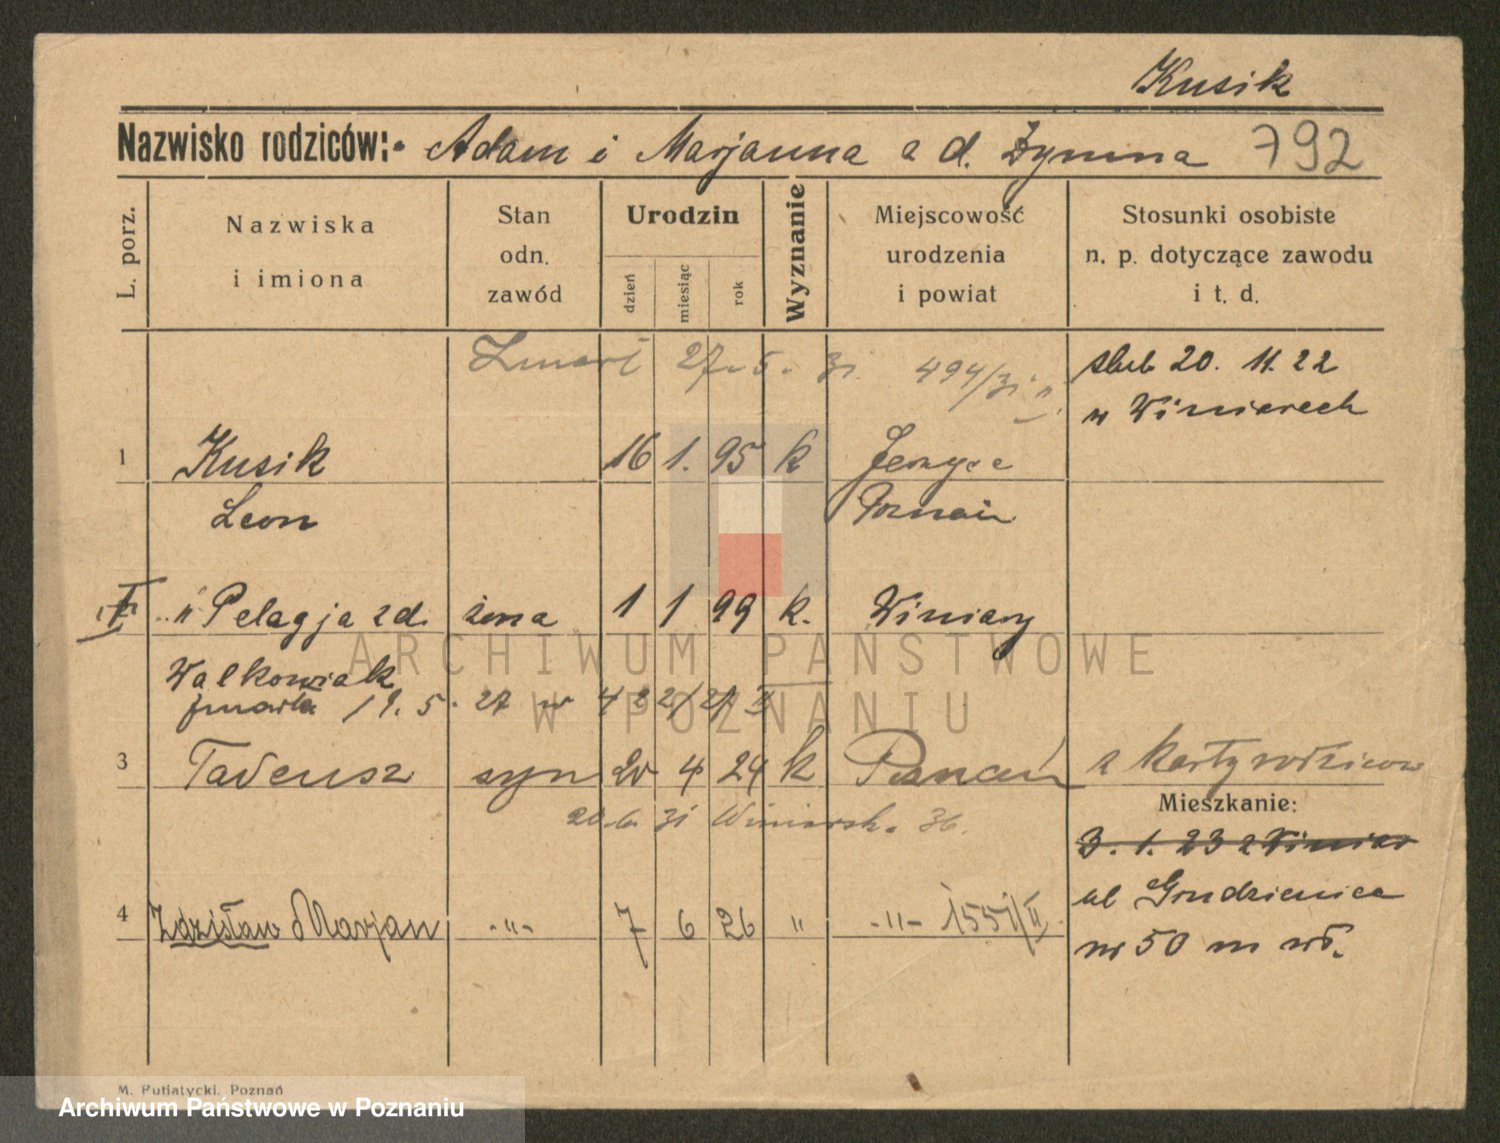 Kusik
Nazwisko rodziców: Adam i Marjanna z d. Dymna 792
L. porz.
Nazwiska i imiona
Stan odn. zawód
Urodzin
dzień miesiąc rok
Wyznanie
Miejscowość urodzenia i powiat
Stosunki osobiste n. p. dotyczące zawodu i t. d.
Zmarł 27. 5. 31. 494/31 II
ślub 20. 11. 22
w Winiarach
1 Kusik 16 1. 95 k Jerzyce
Leon Poznań
II " Pelagja z d. żona 1 1 99 k. Winiary
Walkowiak
zmarła 19. 5. 27
3 Tadeusz syn 20 4 24 k Poznań z karty rodziców
31 Winiarska 36.
Mieszkanie:
3. 1. 23 z Winiar
ul Grudzieniec
nr 50 m wł.
4 Zdzisław Marjan -"- 7 6 26 " -"- 1551/II
M. Putiatycki, Poznań
ARCHIWUM PAŃSTWOWE
W POZNANIU
Archiwum Państwowe w Poznaniu